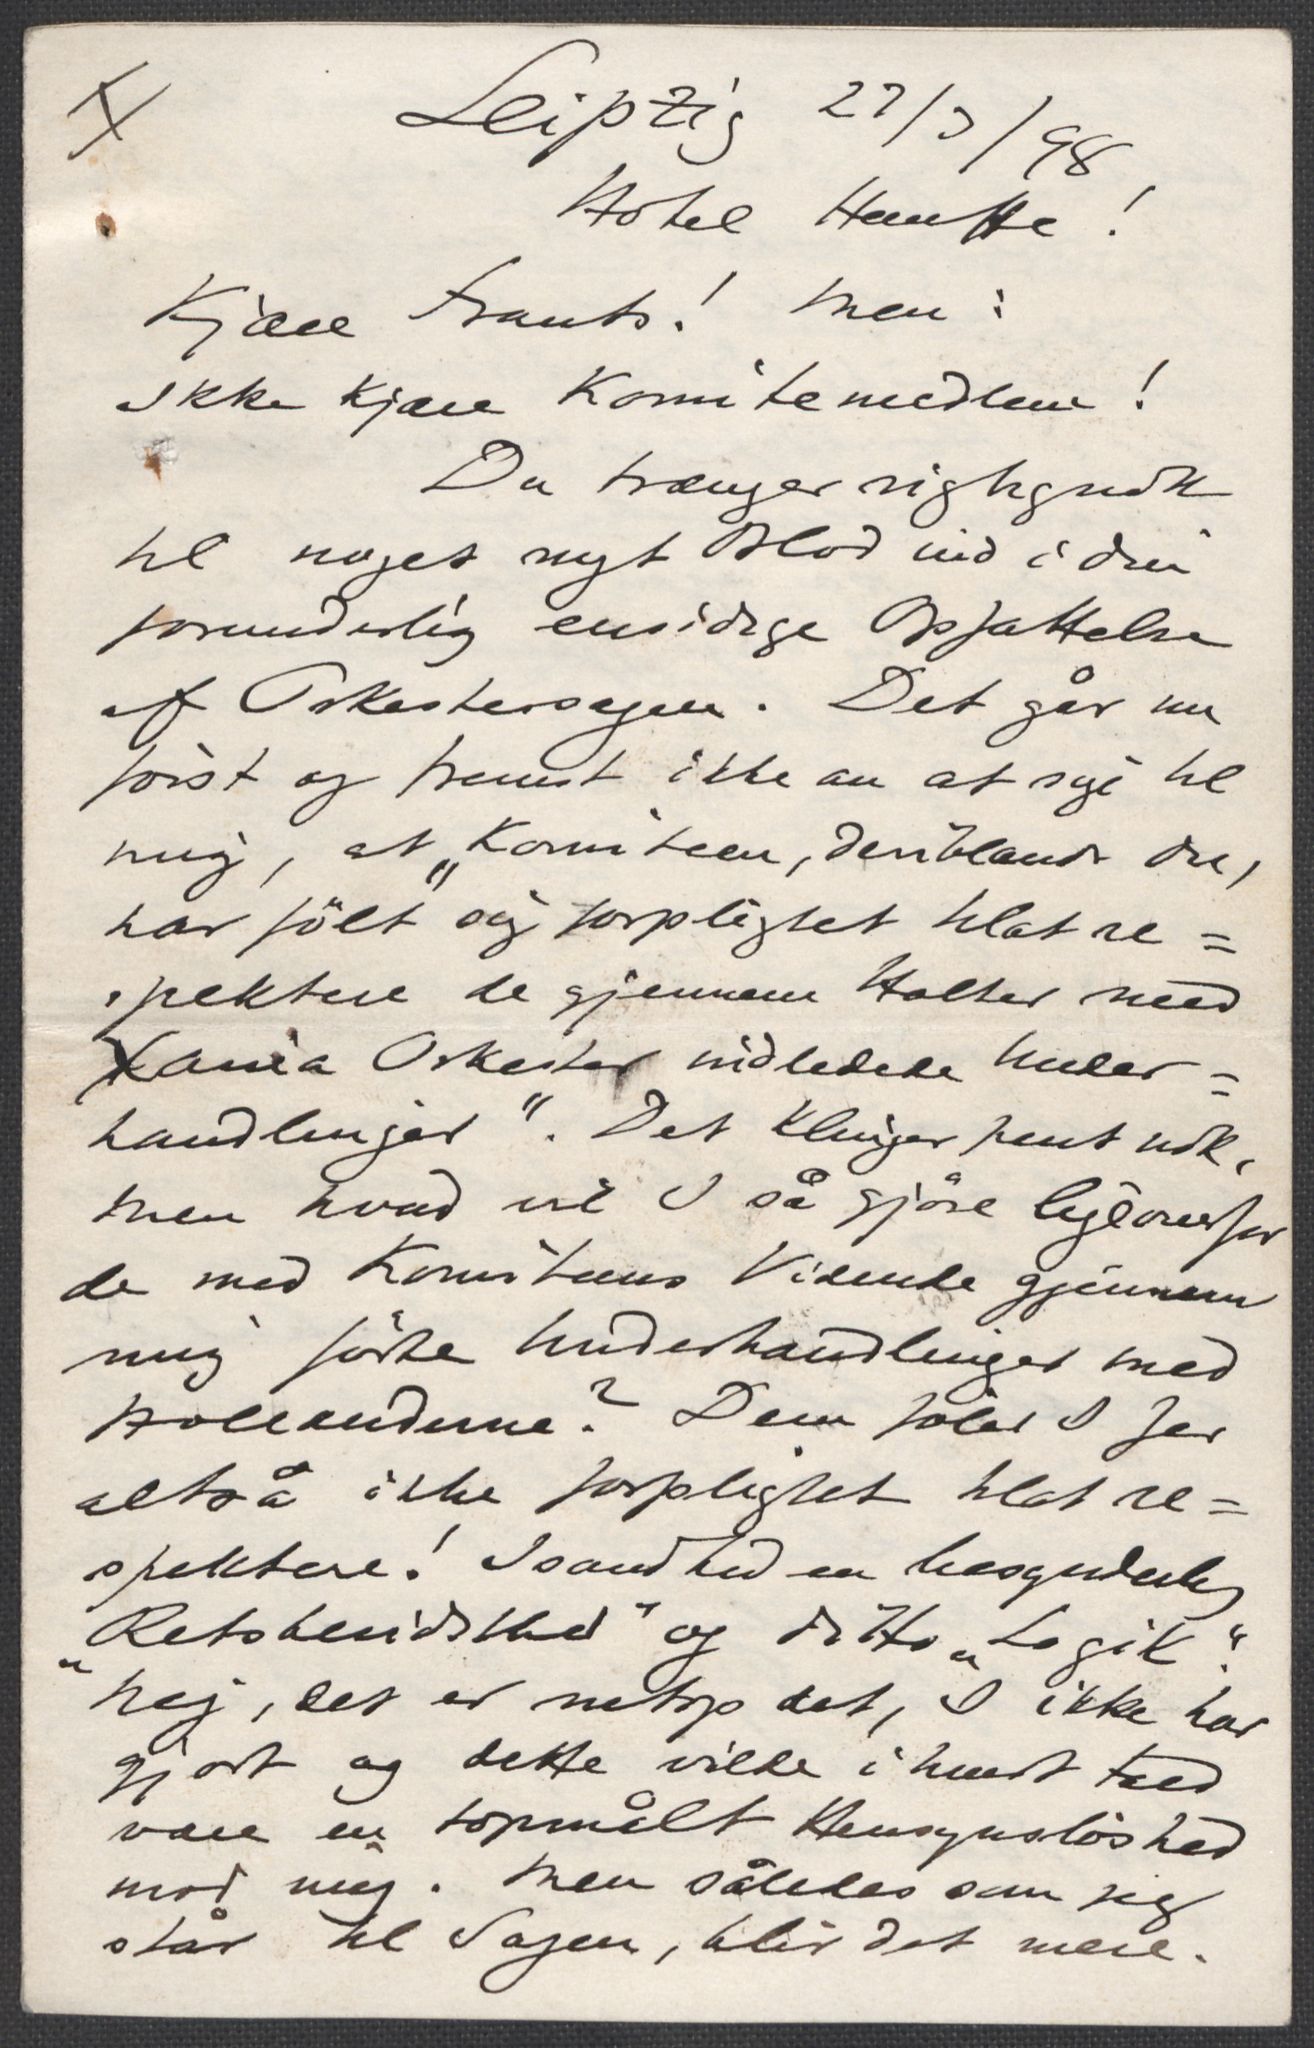 X
Leipzig 27/3/98
Hotel Hauffe!
Kjære Frants! Men:
ikke kjære Komitemedlem!
Du trænger rigtignok
til noget nyt Blod ind i din
forunderlig ensidige Opfattelse
af Orkestersagen. Det går nu
först og fremst ikke an at sige til
mig, at "Komiteen, deriblandt du,
har fölt sig forpligtet til at re=
spektere de gjennem Halter med
Xania Orkester indledede Under=
handlinger". Det klinger pent nok,
men hvad vil I så gjöre ligeoverfor
de med Komiteens Vidende gjennem
mig förte Underhandlinger med
Hollænderne? Dem föler I jer
altså ikke forpligtet til at re=
spektere! I sandhed en besynderlig
"Retsbevidsthed" og ditto "Logik".
Nej, det er netop det, I ikke har
gjort og dette vilde i hvert Fald
være en topmålt Hensynslöshed
mod mig. Men således som jeg
står til Sagen, blir det mere.